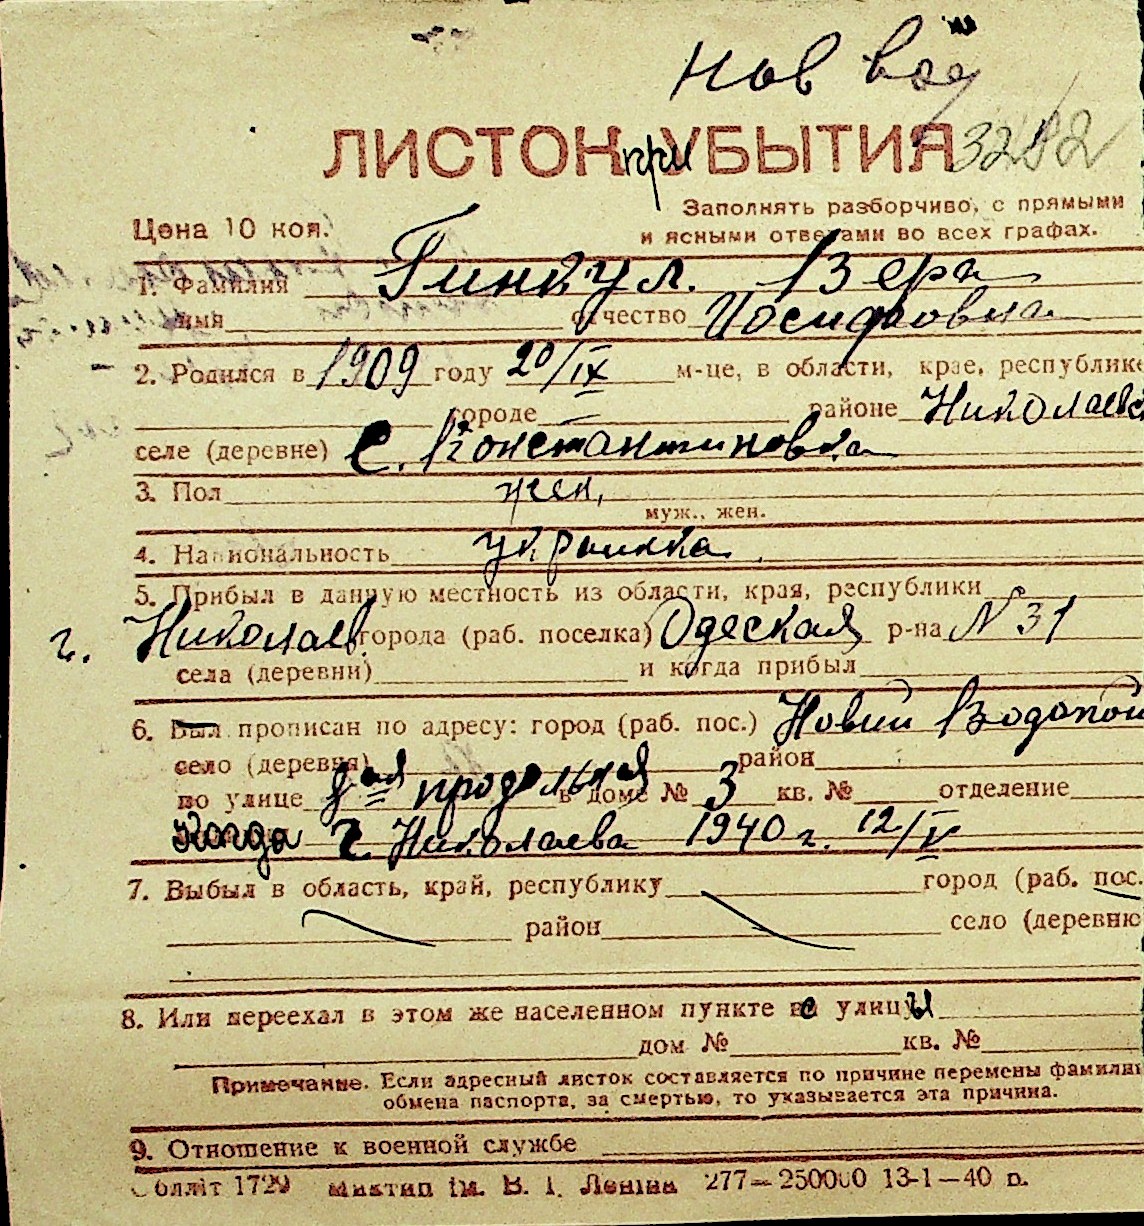 Нов вод
ЛИСТОК при УБЫТИЯ 3282
Заполнять разборчиво, с прямыми
Цена 10 коп. и ясными ответами во всех графах.
1. Фамилия Гинкул. Вера
имя отчество Иосифовна
2. Родился в 1909 году 20/IX м-це, в области, крае, республике
городе районе Николаевс
селе (деревне) с. Константиновка
3. Пол жен.
муж., жен.
4. Национальность украинка
5. Прибыл в данную местность из области, края, республики
г. Николаев. города (раб. поселка) Одеская р-на N 31
села (деревни) и когда прибыл
6. Был прописан по адресу: город (раб. пос.) Новий Водопой
село (деревня) район
по улице 8ая продольная в доме № 3 кв. № отделение
Когда г. Николаева 1940 г. 12/V
7. Выбыл в область, край, республику город (раб. пос.
район село (деревню
8. Или переехал в этом же населенном пункте с улицы
дом № кв. №
Примечание. Если адресный листок составляется по причине перемены фамилии
обмена паспорта, за смертью, то указывается эта причина.
9. Отношение к военной службе
Обллiт 1729 Миктип iм. В. I. Ленiна 277—250000 13-1—40 р.